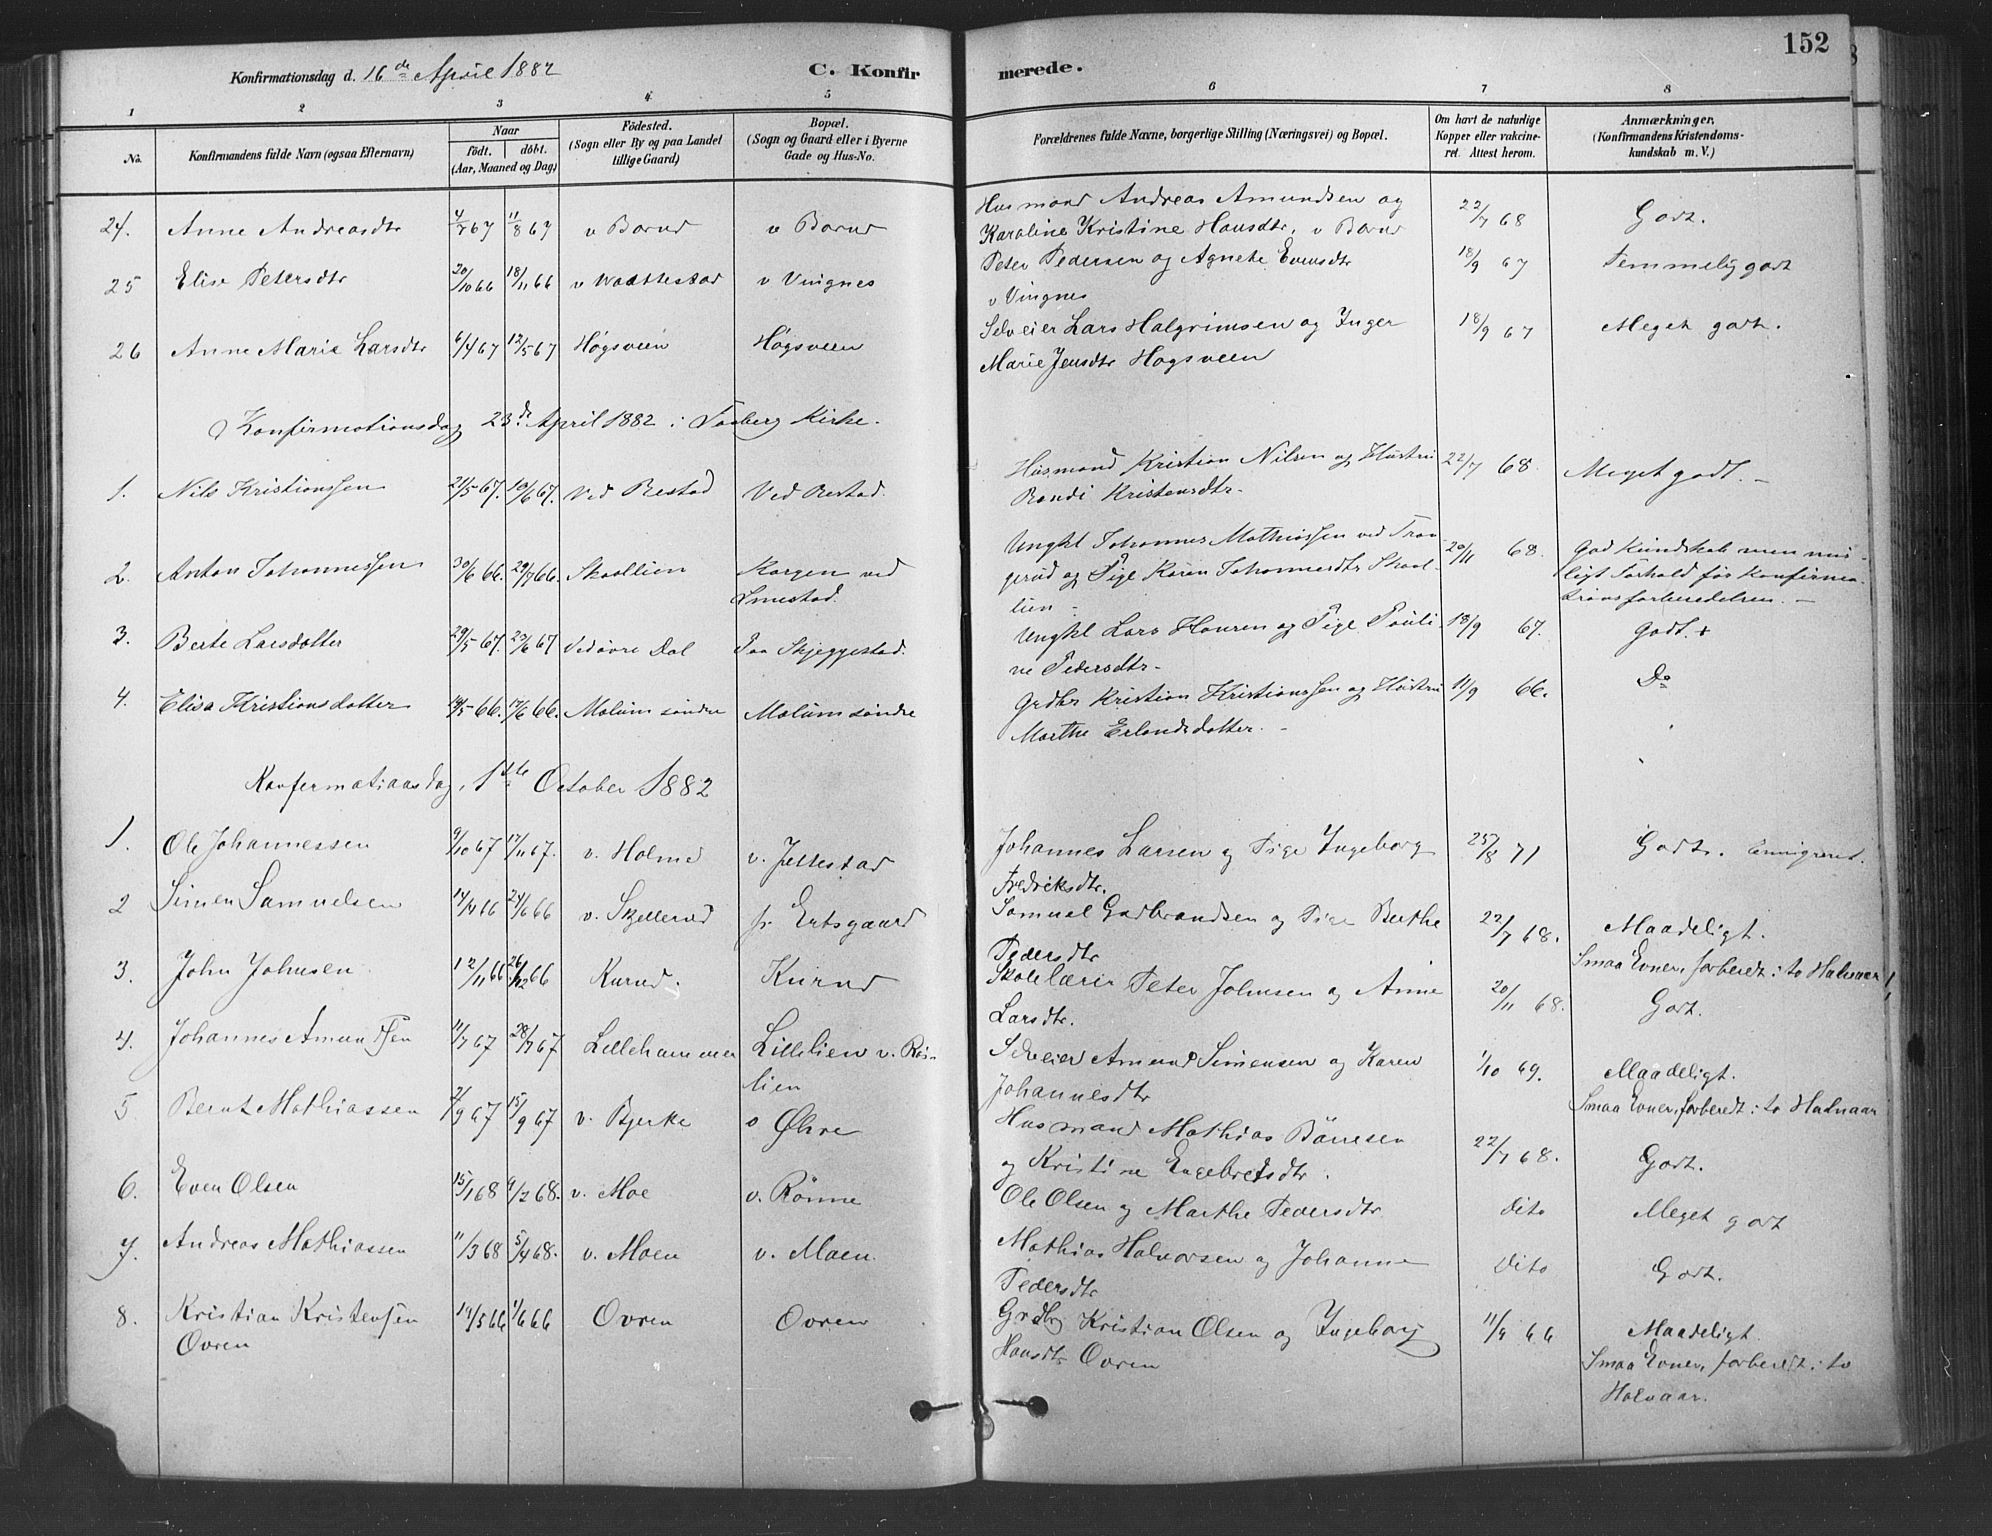 152
Konfirmationsdag d. 16de April 1882
C. Konfirmerede.
1 2 3 4 5 6 7 8
No.
Konfirmandens fulde Navn (ogsaa Efternavn)
Naar
födt. döbt.
(Aar, Maaned og Dag)
Födested.
(Sogn eller By og paa Landet
tillige Gaard)
Bopæl.
(Sogn og Gaard eller i Byerne
Gade og Hus-No.
Forældrenes fulde Navne, borgerlige Stilling (Næringsvei) og Bopæl.
Om havt de naturlige
Kopper eller vakcine-
ret. Attest herom.
Anmærkninger.
(Konfirmandens Kristendoms-
kundskab m. V.)
24. Anne Andreasdtr 4/7 67 11/8 67 v Borud v Borud Husmand Andreas Amundsen og
Karoline Kristine Hansdtr. v Borud 22/7 68 Godt.
25 Elise Petersdtr 20/10 66 18/11 66 v Vingnes Peter Pedersen og Agnethe Evensdtr
v Vingnes 18/9 67 Temmelig godt
26 Anne Marie Larsdtr 6/4 67 12/5 67 Høgsveen Høgsveen Selveier Lars Halgrimsen og Inger
Marie Jensdtr Høgsveen 18/9 67 Meget godt.
Konfirmationsdag 23de April 1882 i Faaberg Kirke.
1. Nils Kristianssen 21/5 67. 10/6 67. Ved Bestad Ved Bestad. Husmand Kristian Nilsen og Hustru
Randi Kristensdtr. 22/7 68. Meget godt. –
2. Anton Johannessen 30/6 66. 29/7 66. Skaallien Korgen ved
Smestad. Ungkl Johannes Mathiassen ved Tran-
gerud og Pige Karen Johannesdtr Skaal-
lien – 20/11 68. God Kundskab men mis-
ligt Forhold før Konfirma-
tionsforberedelsen. –
3. Berte Larsdotter 29/5 67. 23/6 67 Ved øvre Dal Paa Skjeggestad. Ungkl Lars Hansen og Pige Pauli-
ne Pedersdtr – 18/9 67. Godt. +
4. Elisa Kristiansdotter 19/5 66. 17/6 66. Mælum søndre Mælum søndre Grdbr Kristian Kristianssen og Hustru
Marthe Erlandsdotter. – 11/9 66. Do
Konfermationsdag, 1ste October 1882
1. Ole Johannessen 9/10 67 17/11 67. v. Holme v. Jettestad Johannes Larsen og Pige Ingeborg
Fredriksdtr. 25/8 71 Godt. Emmigreret.
2 Simen Samuelsen 14/4 66 24/6 66 v. Skjellerud pr. Ertsgaard Samuel Gudbrandsen og Pige Berthe
Pedersdtr 22/7 68. Maadeligt.
Smaa Evner, forberedt i to Halvaar
3. John Johnsen 12/11 66 26/12 66 Kurud. Kurud Skolelærer Peter Johnsen og Anne
Larsdtr. 20/11 68. Godt.
4. Johannes Amundsen 11/7 67 28/7 67 Lillehammer Lillelien v. Roi-
lien Selveier Amund Simensen og Karen
Johannesdtr 1/10 69. Maadeligt.
Smaa Evner, forberedt i to Halvaar
5. Bernt Mathiassen 2/9 67 15/9 67 v. Bjerke v Øhre Husmand Mathias Börresen
og Kristine Engebretsdtr. 22/7 68. Godt.
6. Even Olsen 15/1 68 9/2 68. v. Moe v. Rönne Ole Olsen og Marthe Pedersdtr. dito Meget godt
7. Andreas Mathiassen 11/3 68 5/4 68. v. Moen v. Moen. Mathias Halvorsen og Johanne
Pedersdtr dito Godt.
8. Kristian Kristensen
Ovren 19/5 66 1/6 66 Ovren Ovren Grdbr Kristian Olsen og Ingeborg
Hansdtr Ovren 11/9 66 Maadeligt.
Smaa Evner, forberedt i to
Halvaar.